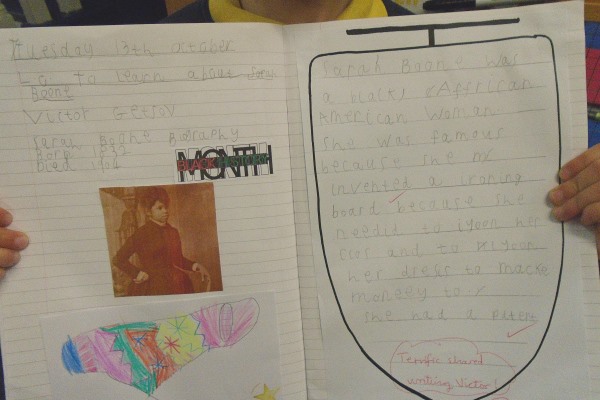 Tuesday 13th october
Lo: To learn about Sarah
Boone
Victor
Sarah Boone Biography
Born 1832
Died 1904
BLACK HISTORY
MONTH
Sarah Boone Was
a black Affrican
American Woman.
She was famous
because she
invented a ironing
board because she
needid to iyoon her
and to
her dress to macke
moneey to
she had a Patent
Terrific shared
writing Victor!